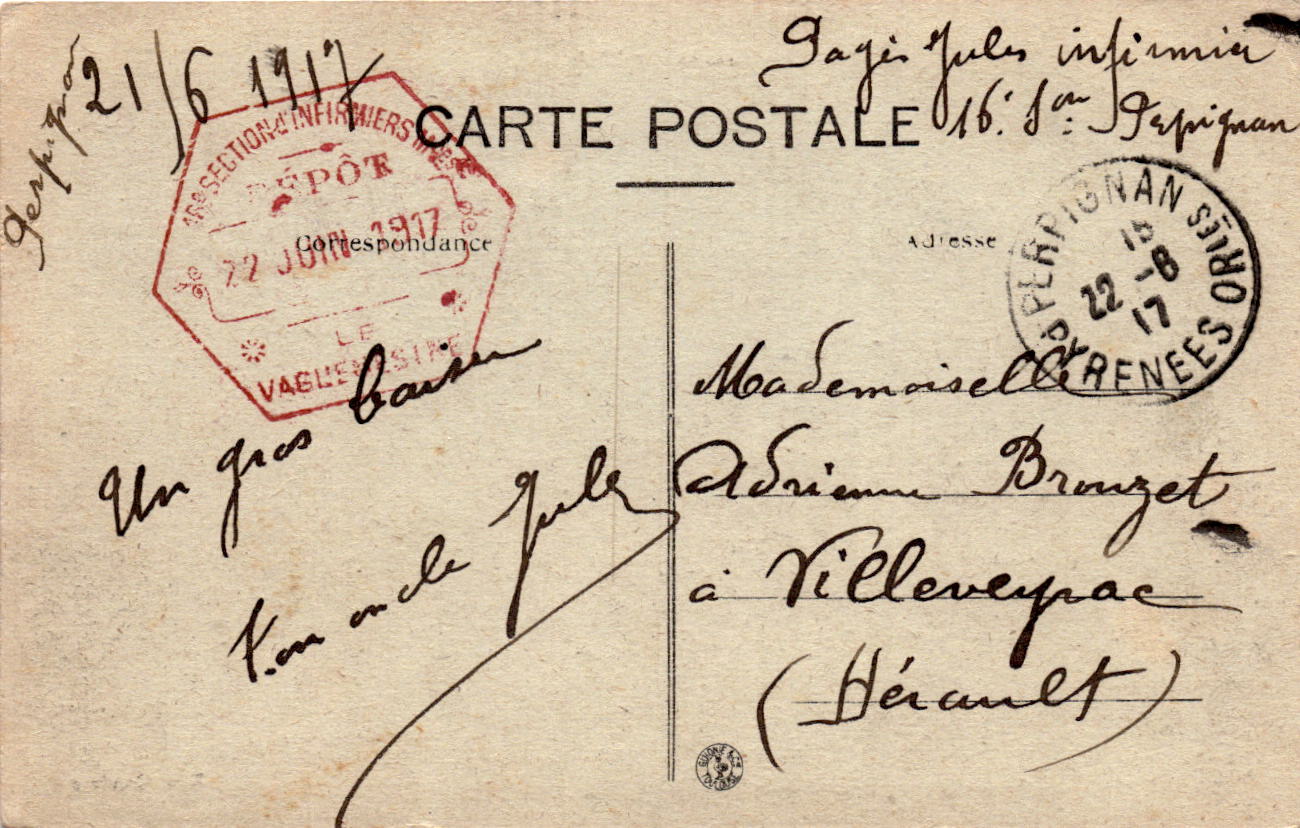 Perpignan 21/6 1917
Pagès Jules infirmier
16e Son Perpignan
CARTE POSTALE
Correspondance
Adresse
16e SECTION d'INFIRMIERS Mres
DÉPÔT
22 JUIN 1917
LE
VAGUEMESTRE
PERPIGNAN
PYRENEES ORIles
22 -6
17
Un gros baiser
Ton oncle Jules
Mademoiselle
Adrienne Brouzet
à Villeveyrac
(Hérault)
GUIONIE & Cie
TOULOUSE